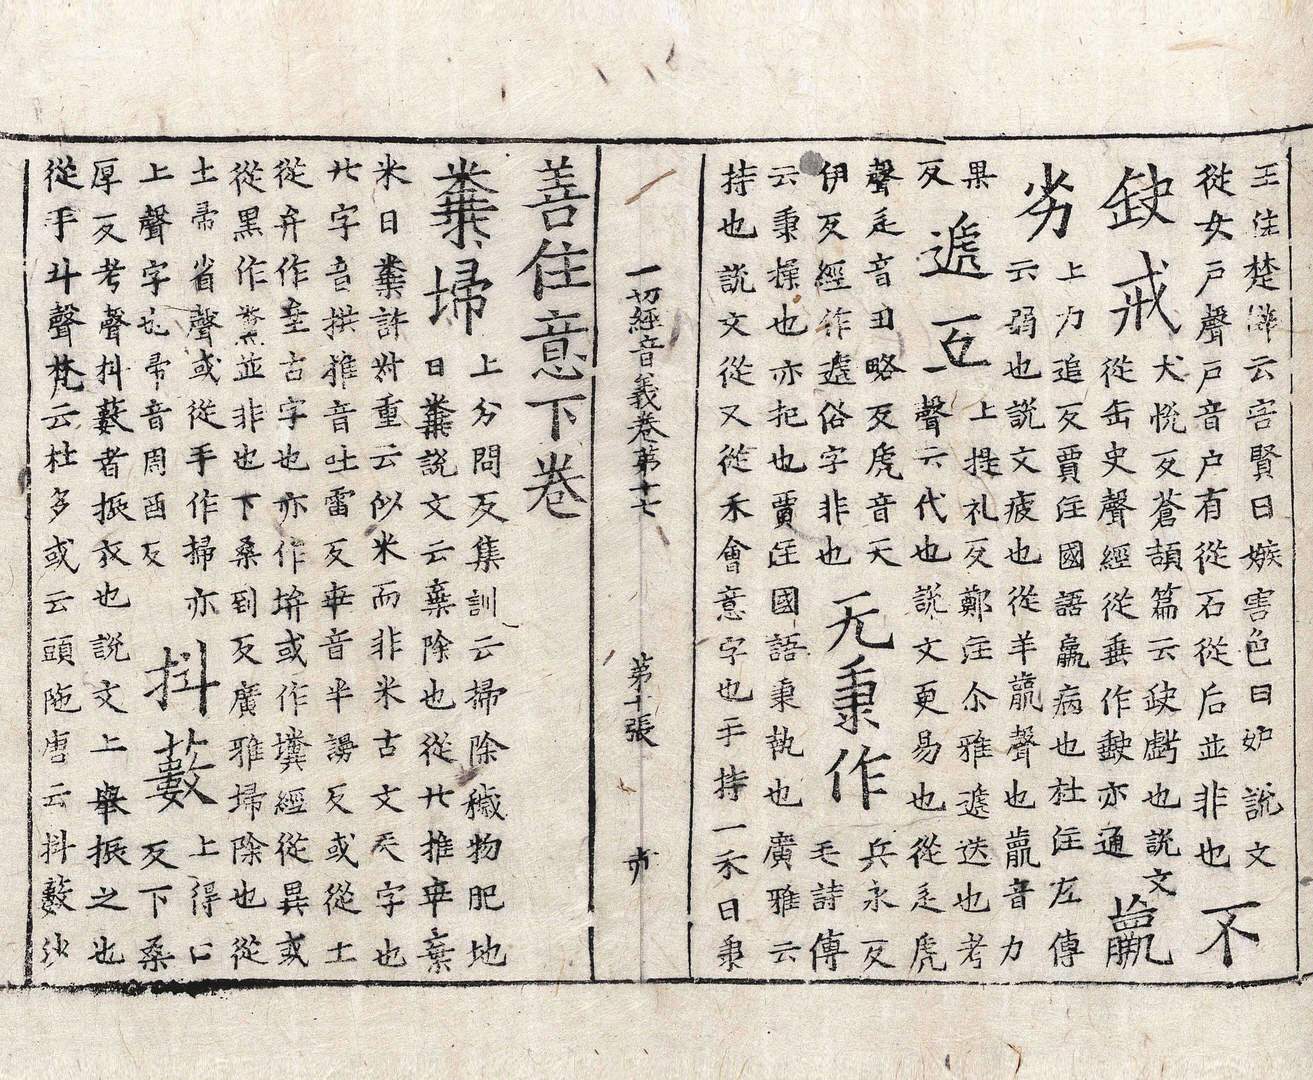 王注楚辭云害賢曰嫉害色曰妒說文
從女戶聲戶音户有從石從后並非也不
缺戒犬恱反蒼頡篇云缺虧也說文
從缶史聲經從垂作𡙇亦通羸
劣上力追反賈注國語羸病也杜注左傳
云弱也說文疲也從羊羸聲也羸音力
果
反遞互上提礼反鄭注尒雅遞迭也考
聲云代也說文更易也從辵虒
聲辵音丑略反虒音天
伊反經作遞俗字非也无秉作兵永反
毛詩傳
云秉操也亦把也賈注國語秉執也廣雅云
持也說文從又從禾會意字也手持一禾曰秉
一切經音義卷第十七 第十張
善住意下卷
糞埽上分問反集訓云掃除穢物肥地
曰糞說文云棄除也從廾推𠦒棄
米曰糞許叔重云似米而非米古文字也
廾字音拱推音吐雷反𠦒音半謾反或從土
從弁作古字也亦作或作糞經從異或
從黑作並非也下桑到反廣雅埽除也從
土帚省聲或從手作掃亦
上聲字也帚音周酉反抖藪上得口
反下桑
厚反考聲抖藪者振衣也說文上舉振之也
從手斗聲梵云杜多或云頭陁唐云抖藪沙